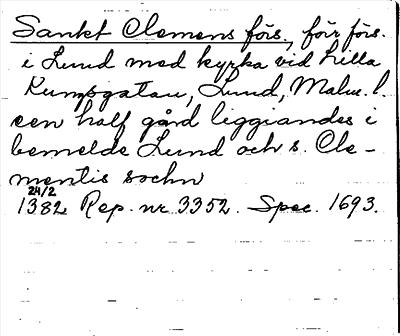 Sankt Clemens förs., förr förs.
i Lund med kyrka vid Lilla
Kungsgatan, Lund, Malm. l.
een half gård liggiandes i
bemelde Lund och s. Cle-
mentis sochn
24/2
1382 Rep. nr 3352. Spec. 1693.